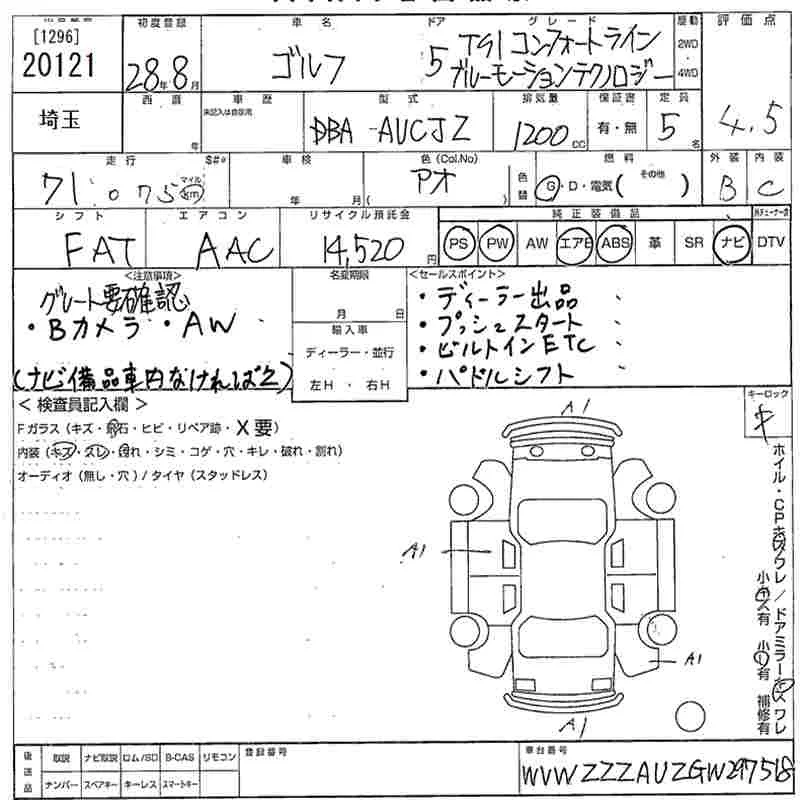 [1296]
20121
初度登録
28年8月
車名
ゴルフ
ドア
5
グレード
TSI コンフォートライン
ブルーモーションテクノロジー
駆動
2WD
4WD
評価点
4.5
埼玉
西暦
年
車歴
未記入は自家用
型式
DBA - AUCJZ
排気量
1200cc
保証書
有・無
定員
5名
走行
71:075
マイル
km
$#○
車検
年 月
色 (Col.No)
アオ
( )
色替
燃料
G・D・電気( その他 )
外装
B
内装
C
シフト
FAT
エアコン
AAC
リサイクル預託金
14,520円
純正装備品
PS PW AW エアB ABS 革 SR ナビ DTV
<注意事項>
グレート要確認
・Bカメラ・AW
(ナビ備品車内なければ之)
名変期限
月 日
輸入車
ディーラー・並行
左H ・ 右H
<セールスポイント>
・ディーラー出品
・プッシュスタート
・ビルトインETC
・パドルシフト
< 検査員記入欄 >
Fガラス (キズ・飛石・ヒビ・リペア跡・X要)
内装 (キズ・スレ・汚れ・シミ・コゲ・穴・キレ・破れ・割れ)
オーディオ (無し・穴) / タイヤ (スタッドレス)
キーロック
キ
A1
A1
A1
A1
ホイル・CPキズワレ / ドアミラーキズワレ
小キズ有 小凹有 補修有
後送品
取説 ナビ取説 ロム/SD B-CAS リモコン
ナンバー スペアキー キーレス スマートキー
登録番号
車台番号
WVWZZZAUZGW297518